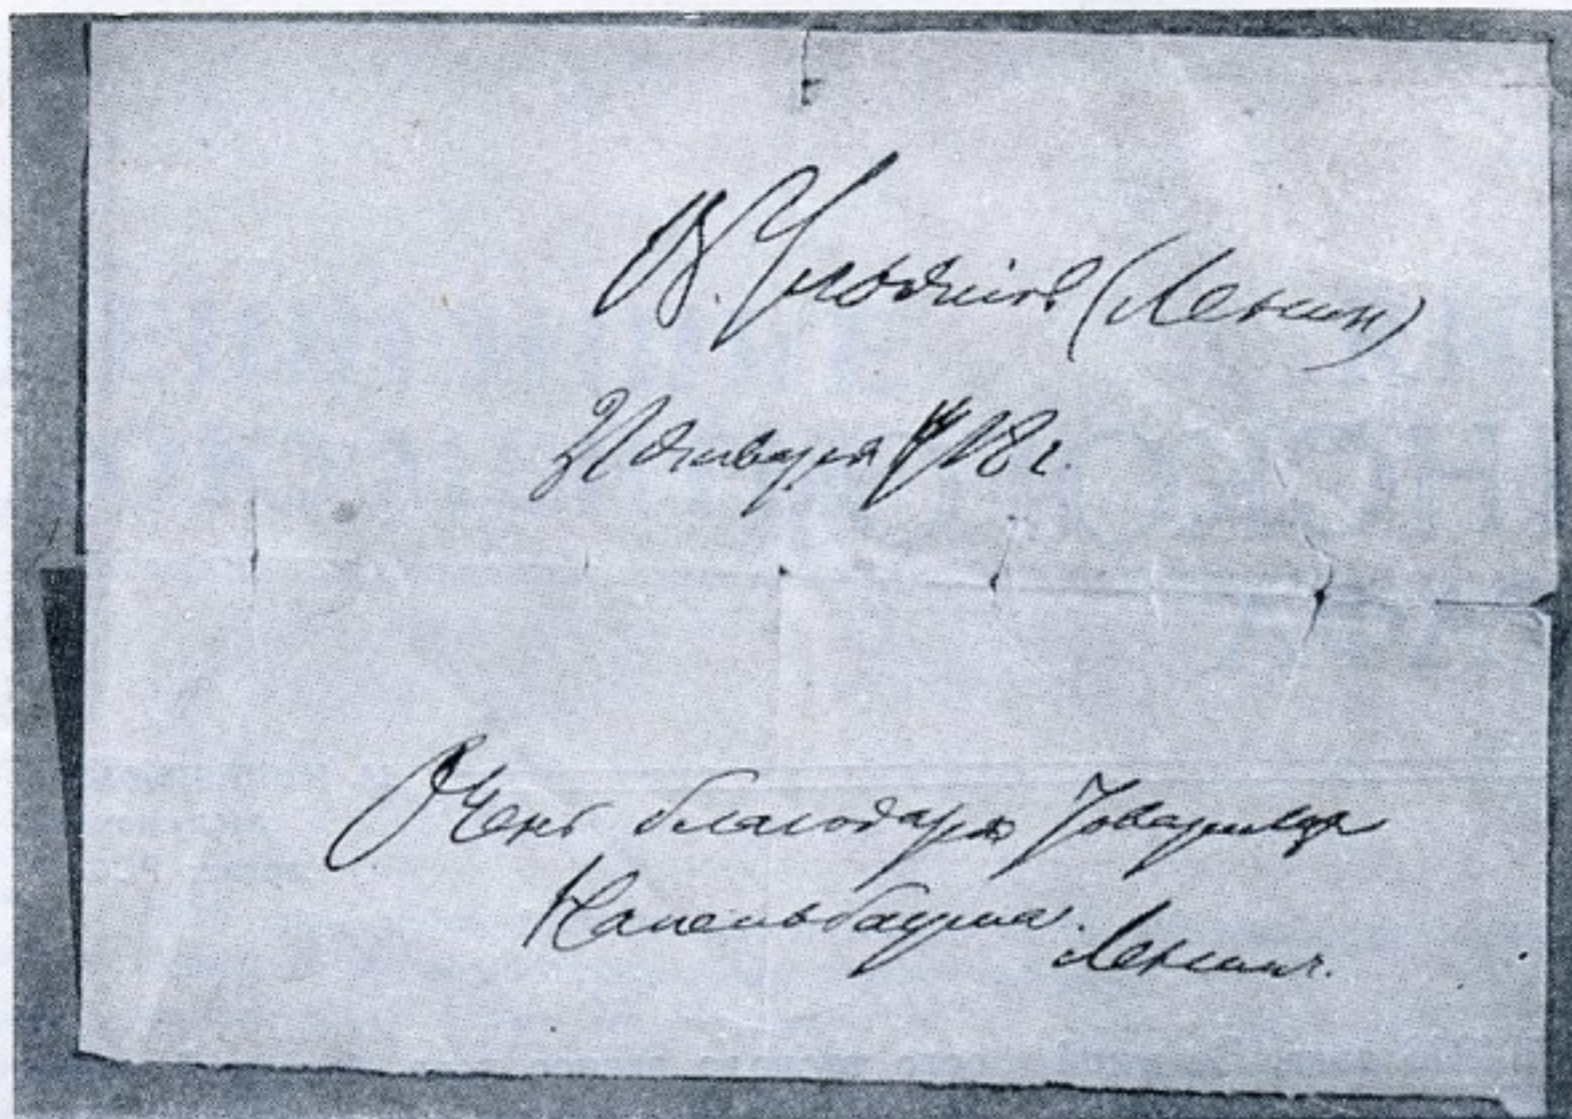 В. Ульянов (Ленин)
31 января 1918 г.
Очень благодарю товарища
Наппельбаума. Ленин.